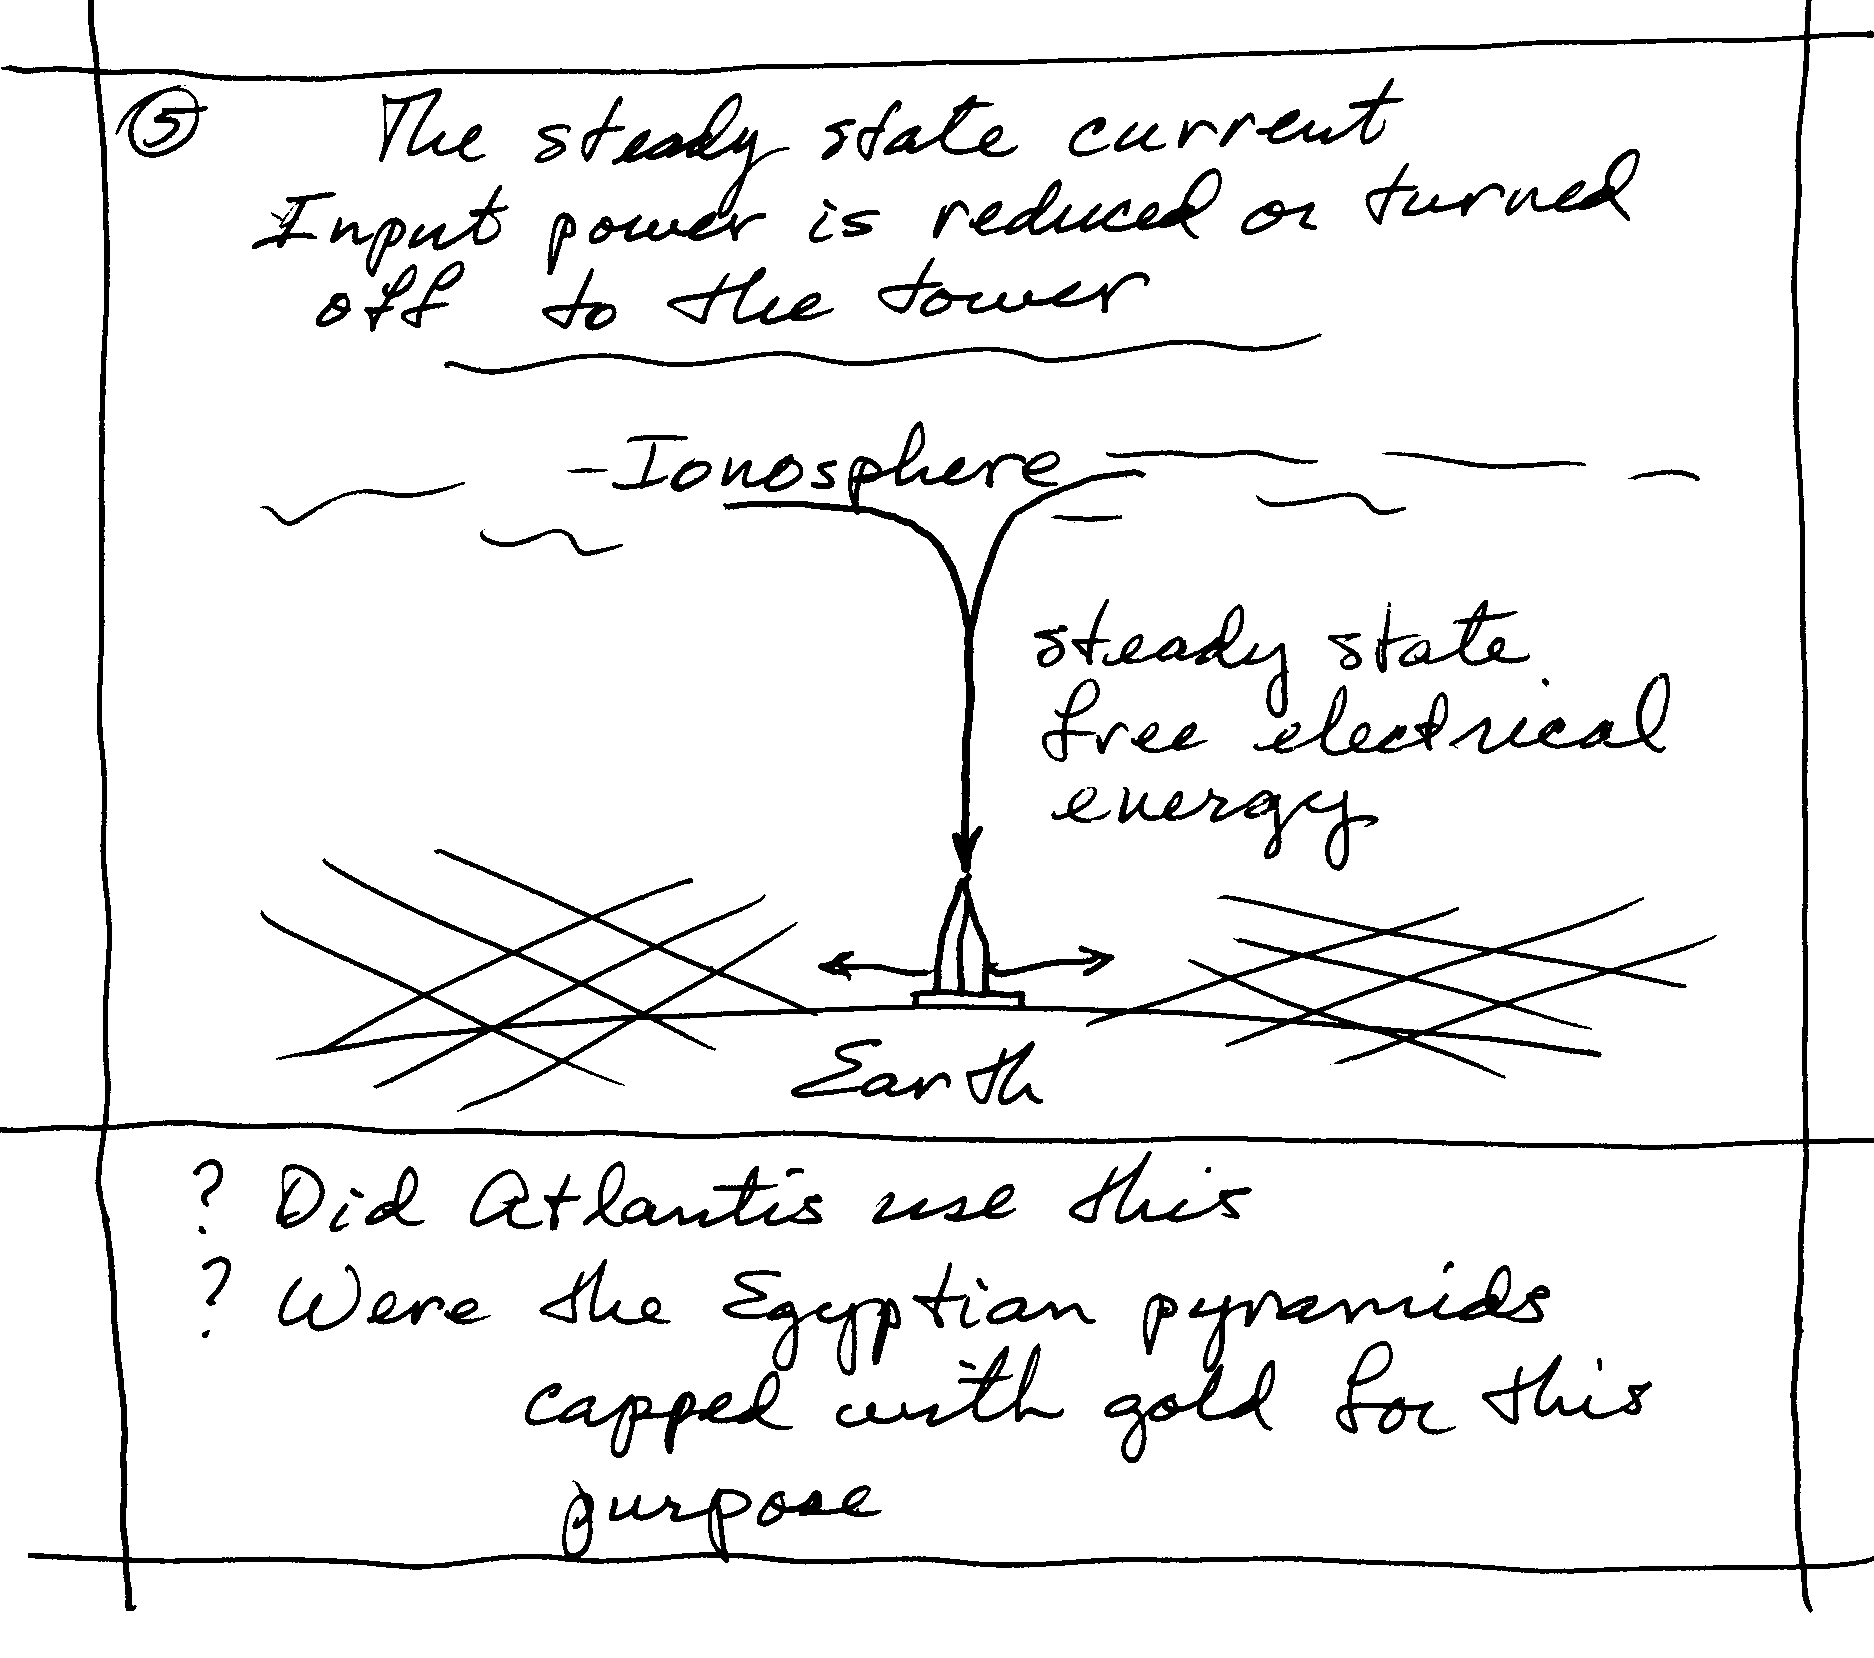 ⑤ The steady state current
Input power is reduced or turned
off to the tower
-Ionosphere
steady state
free electrical
energy
Earth
? Did Atlantis use this
? Were the Egyptian pyramids
capped with gold for this
purpose